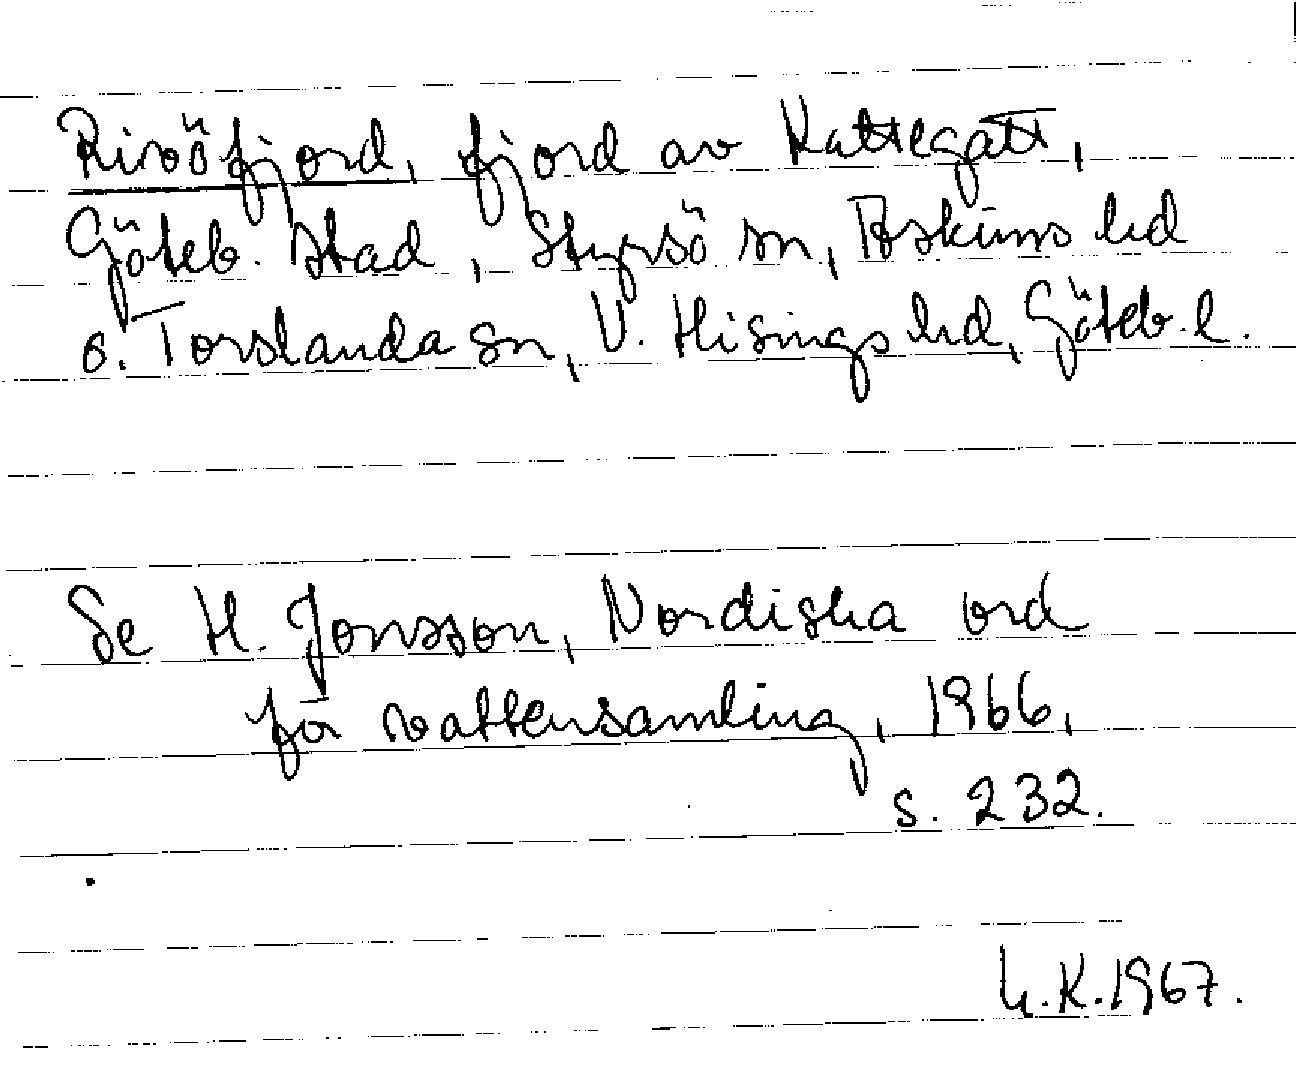 Rivöfjord, fjord av Kattegatt,
Göteb. stad, Styrsö sn, Askims hd
o. Torslanda sn, V. Hisings hd, Göteb. l.
Se H. Jonsson, Nordiska ord
för vattensamling, 1966,
s. 232.
K. 1967.